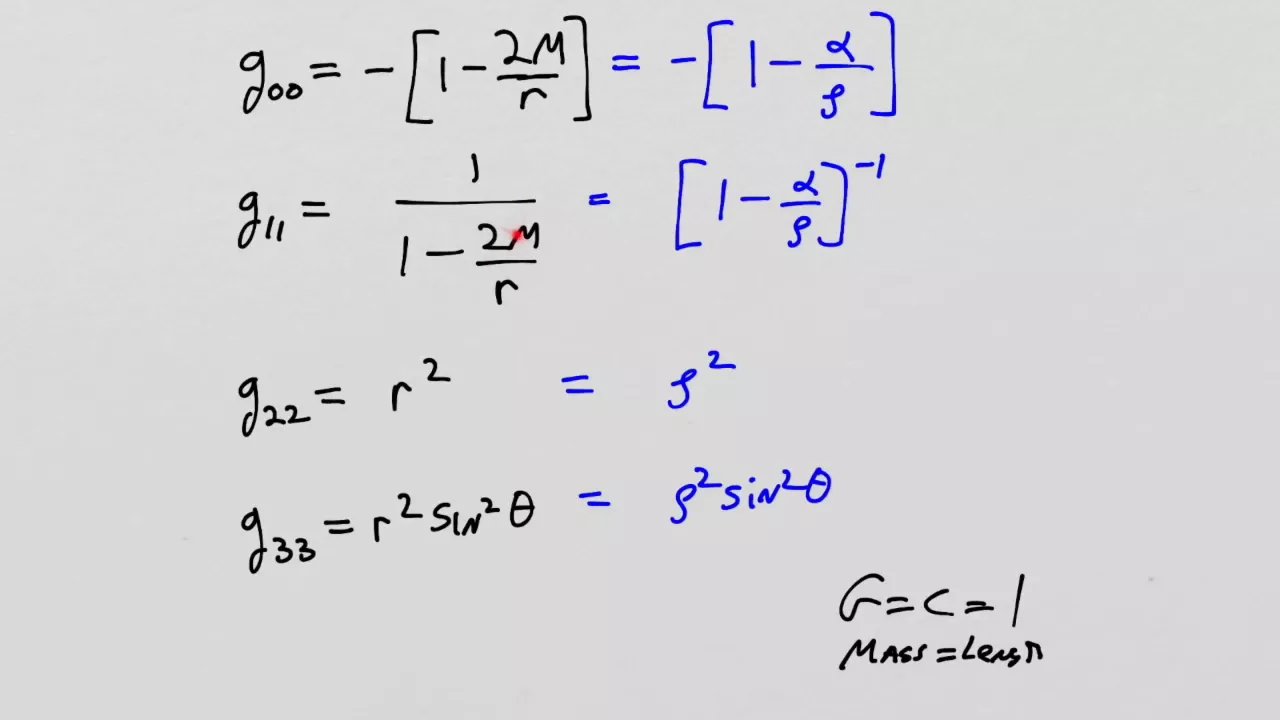 g₀₀ = -[1 - 2M/r] = -[1 - α/ρ]
g₁₁ = 1/(1 - 2M/r) = [1 - α/ρ]⁻¹
g₂₂ = r² = ρ²
g₃₃ = r² sin² θ = ρ² sin² θ
G = c = 1
MASS = LENGTH